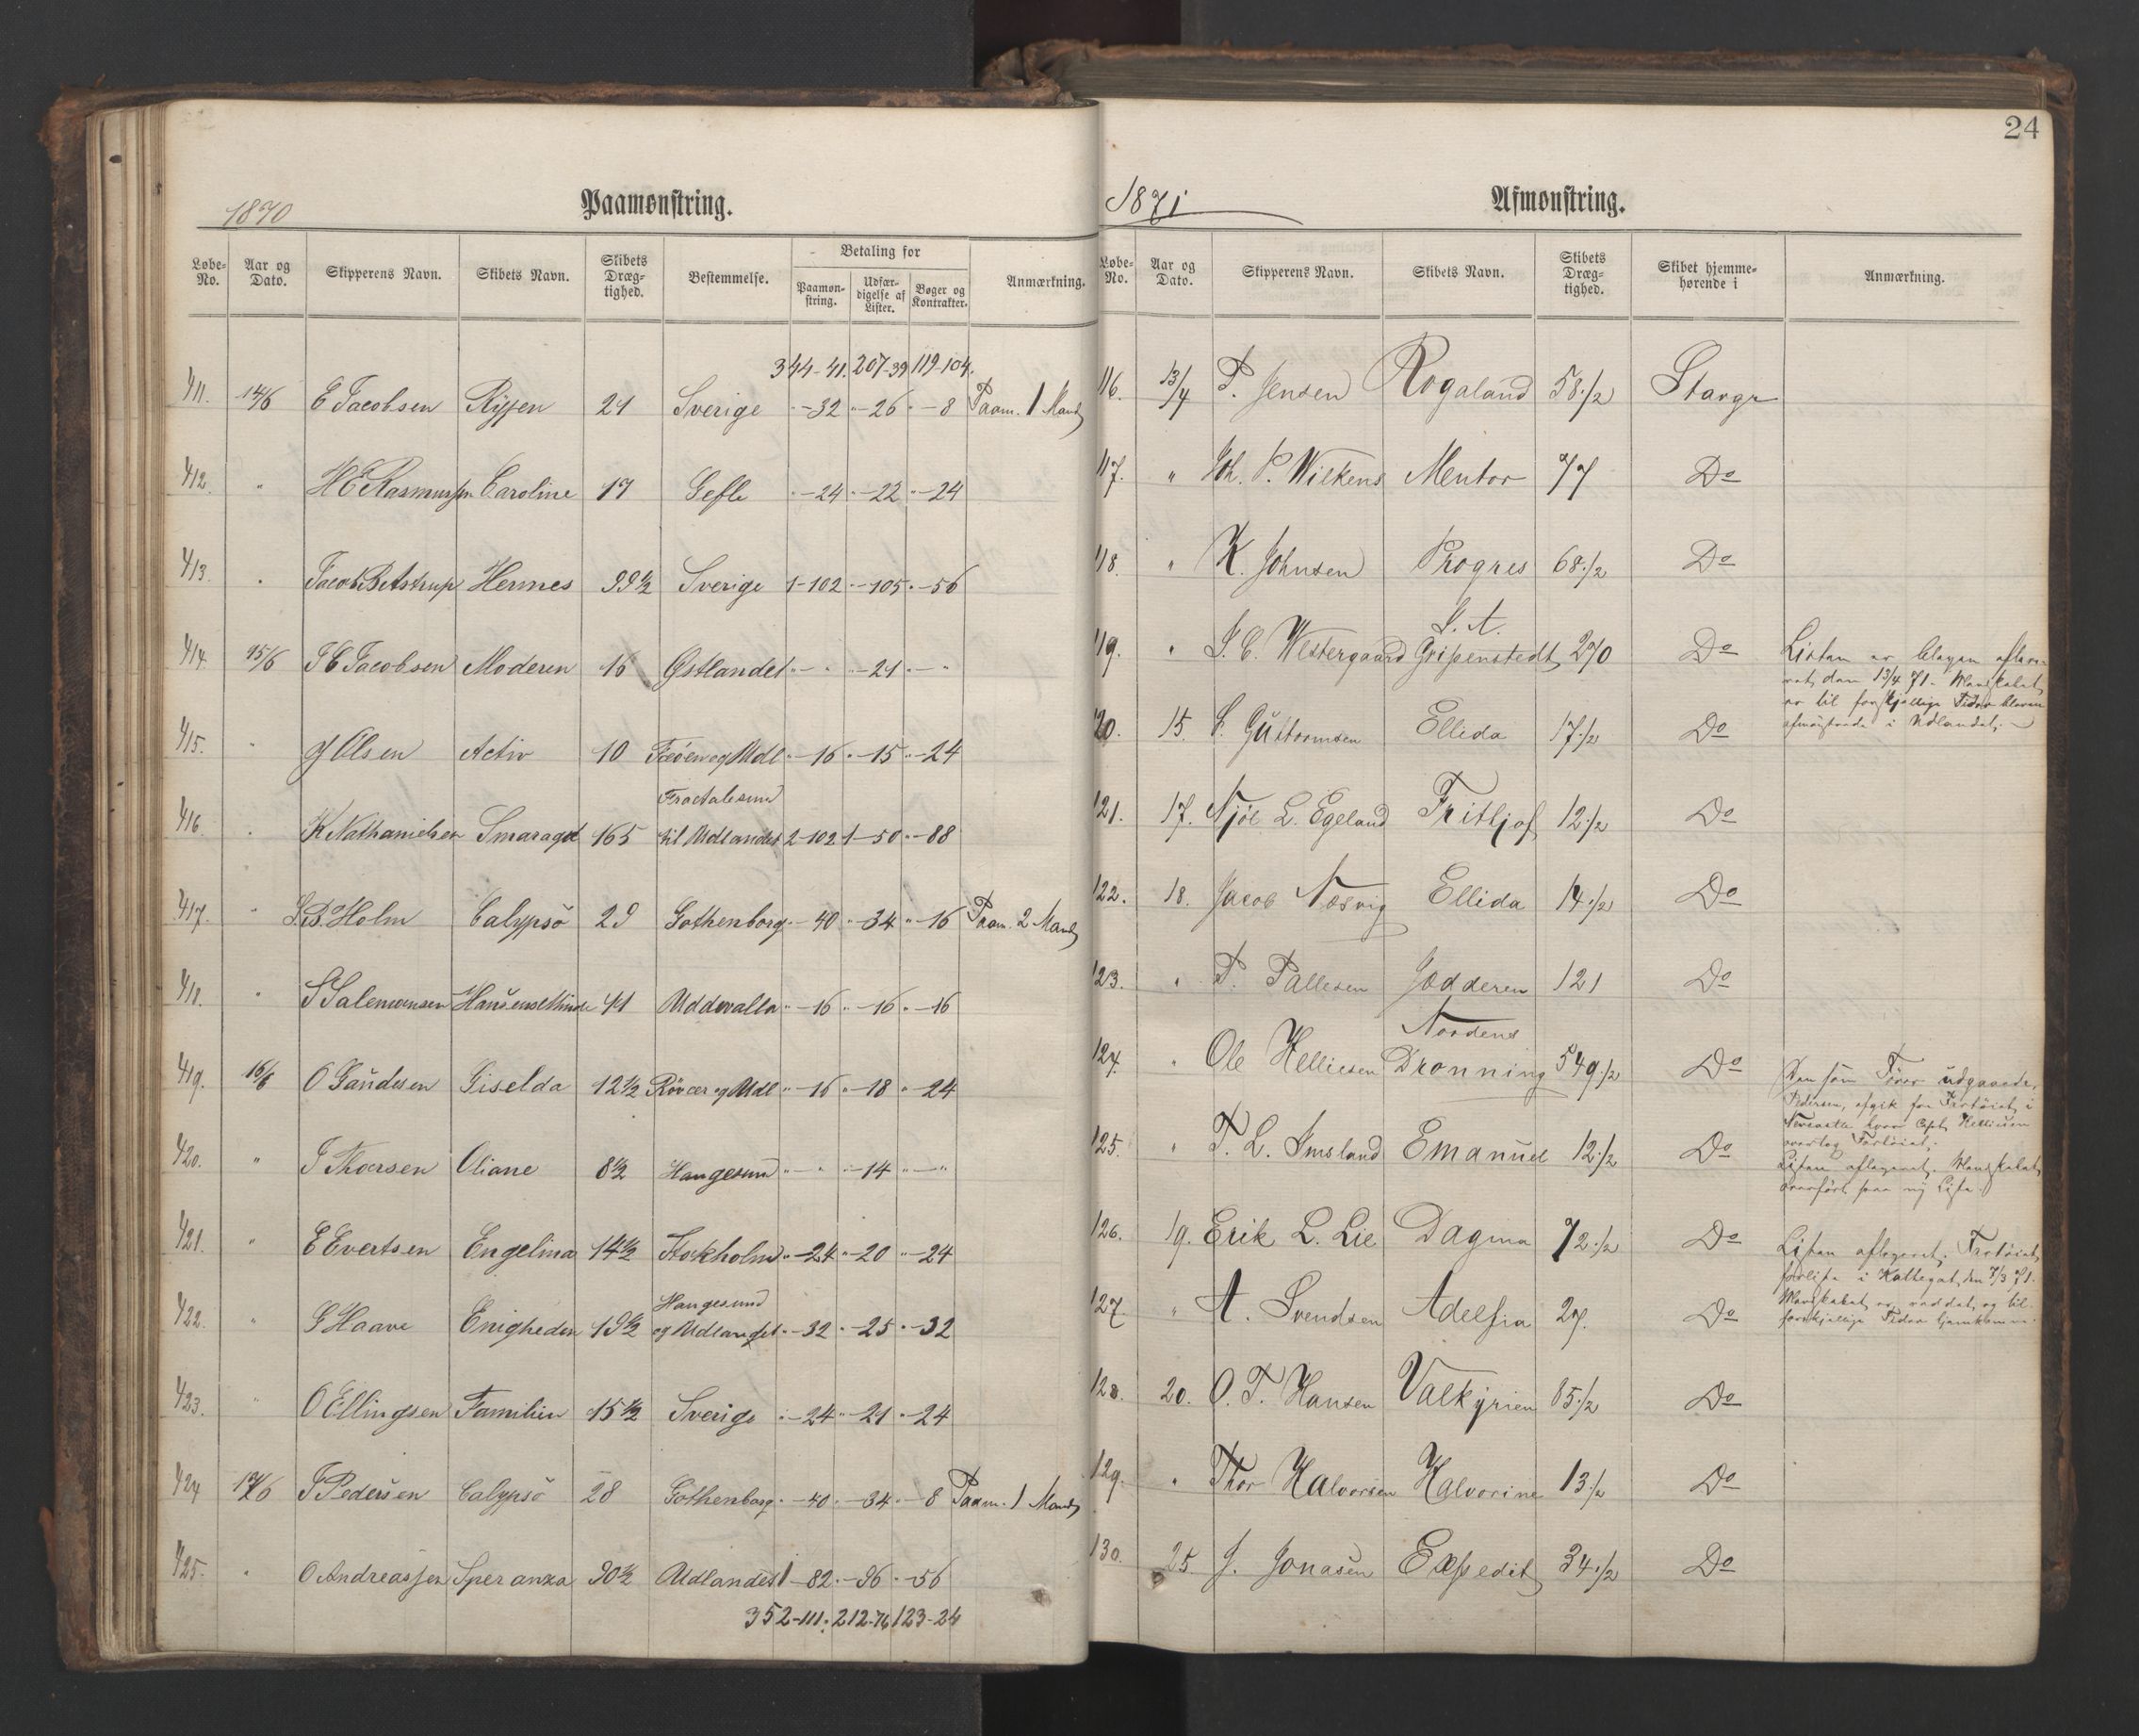 1870 Paamønstring.
Løbe-No. Aar og Dato. Skipperens Navn. Skibets Navn. Skibets Dræg-tighed. Bestemmelse. Betaling for Paamøn-string. Udfær-digelse af Lister. Bøger og Kontrakter. Anmærkning.
344-41. 207-39 119-104.
411. 14/6 E Jacobsen Rÿfen 21 Sverige "-32 "-26 "-8 Paam. 1 Mand
412. " H E Rasmussen Caroline 17 Gefle "-24 "-22 "-24
413. " Jacob B Astrup Hermes 99½ Sverige 1-102 "-105 "-56
414. 15/6 J C Jacobsen Moderen 16 Østlandet "-" "-21 "-"
415. " Olsen Activ 10 og Udl "-16 "-15 "-24
416. " K Nathanielsen Smaragd 165 til Udlandet 2-102 1-50 "-88
417. " S. B. Holm Calypsö 29 Gothenborg "-40 "-34 "-16 Paam. 2 Mand
418. " S Salemonsen 11 Uddevalla "-16 "-16 "-16
419. 16/6 O Gaudesen Giselda 12½ Røvær og Udl "-16 "-18 "-24
420. " J Thorsen Oliane 8½ Haugesund "-" "-14 "-"
421. " E Evertsen Engelina 14½ Stokholm "-24 "-20 "-24
422. " G Haave Enigheden 19½ Haugesund og Udlandet "-32 "-25 "-32
423. " O Ellingsen Familien 15½ Sverige "-24 "-21 "-24
424 17/6 J Pedersen Calypsö 28 Gothenborg "-40 "-34 "-8 Paam. 1 Mand
425. " O Andreassen Speranza 90½ Udlandet 1-82 "-96 "-56
352-111. 212-76 123-24
24
1871 Afmønstring.
Løbe-No. Aar og Dato. Skipperens Navn. Skibets Navn. Skibets Dræg-tighed. Skibet hjemme-hørende i Anmærkning.
116. 13/4 P. Jensen Rogaland 58½ Stavgr
117. " Joh. P. Wilkens Mentor 77 Do
118. " K. Johnsen Progres 68½ Do
119. " S. C. Westergaard S. A. Gripenstedt 270 Do Listen er bleven afleve-
ret den 13/4 71. Mandskabet
er til forskjellige Tider bleven
afmönstrede i Udlandet.
120. 15. L. Gusto­­­­­rmsen Ellida 17½ Do
121. 17. Njöl L. Egeland Frithjof 12½ Do
122. 18. Jacob Næsvig Ellida 14½ Do
123. " P. Pallesen Jædderen 121 Do
124. " Ole Helliesen Nordens Dronning 549½ Do Den som Fører udgaaede,
Pedersen, afgik fra Fartöiet i
Newcastle hvor Capt. Helliesen
overtog Fartöiet.
Listen afleveret. Mandskabet
overfört paa ny Liste.
125. " T. L. Imsland Emanuel 12½ Do
126. 19. Erik L. Lie Dagma 72½ Do Listen afleveret. Fartöiet
forliste i Kattegat den 7/3 71.
Mandskabet er reddet og til
forskjellige Tider hjemkommen.
127. " A. Svendsen Adelfia 27. Do
128. 20. O. T. Hansen Valkyrien 85½ Do
129. " Thor Halvorsen Halvorine 13½ Do
130. 25. J. Jonasen Expedit 34½ Do